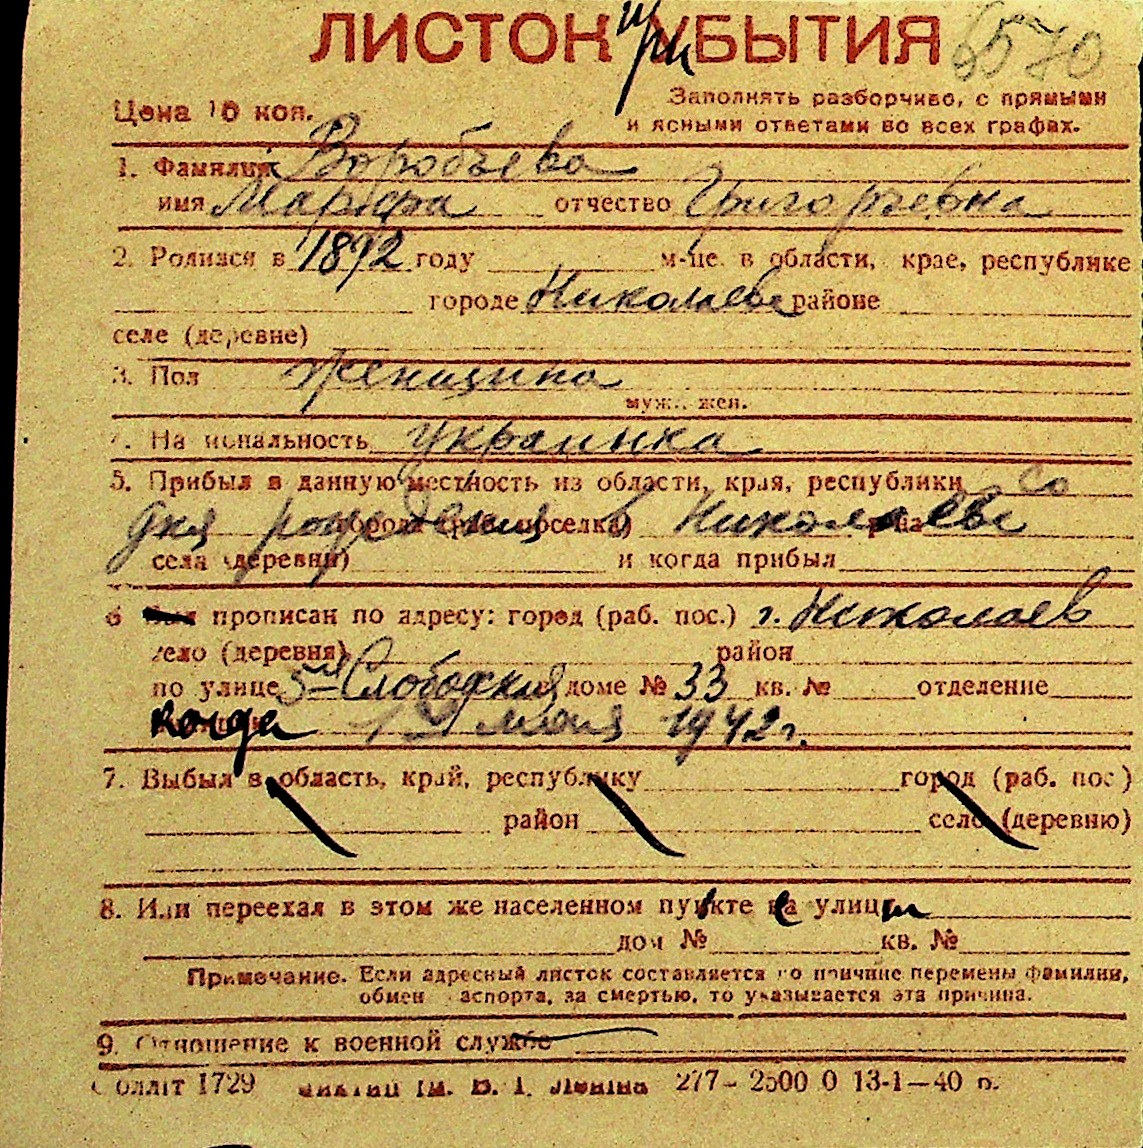 ЛИСТОК при УБЫТИЯ 6570
Цена 10 коп.
Заполнять разборчиво, с прямыми
и ясными ответами во всех графах.
1. Фамилия Воробьева
имя Марфа отчество Григорьевна
2. Родился в 1892 году м-це в области, крае, республике
городе Николаеве районе
селе (деревне)
3. Пол женщина
муж., жен.
4. Национальность украинка
5. Прибыл в данную местность из области, края, республики со
дня рождения в Николаеве
города (раб. поселка) р-на
села (деревни) и когда прибыл
6 прописан по адресу: город (раб. пос.) г. Николаев
село (деревня) район
по улице 5-я Слободская доме № 33 кв. № отделение
когда 19 июня 1942 г.
7. Выбыл в область, край, республику город (раб. пос)
район село (деревню)
8. Или переехал в этом же населенном пункте с улицы
дом № кв. №
Примечание. Если адресный листок составляется по причине перемены фамилии,
обмен паспорта, за смертью, то указывается эта причина.
9. Отношение к военной службе
Соллит 1729 ім. В. І. Леніна 277—2500 0 13-1—40 п.